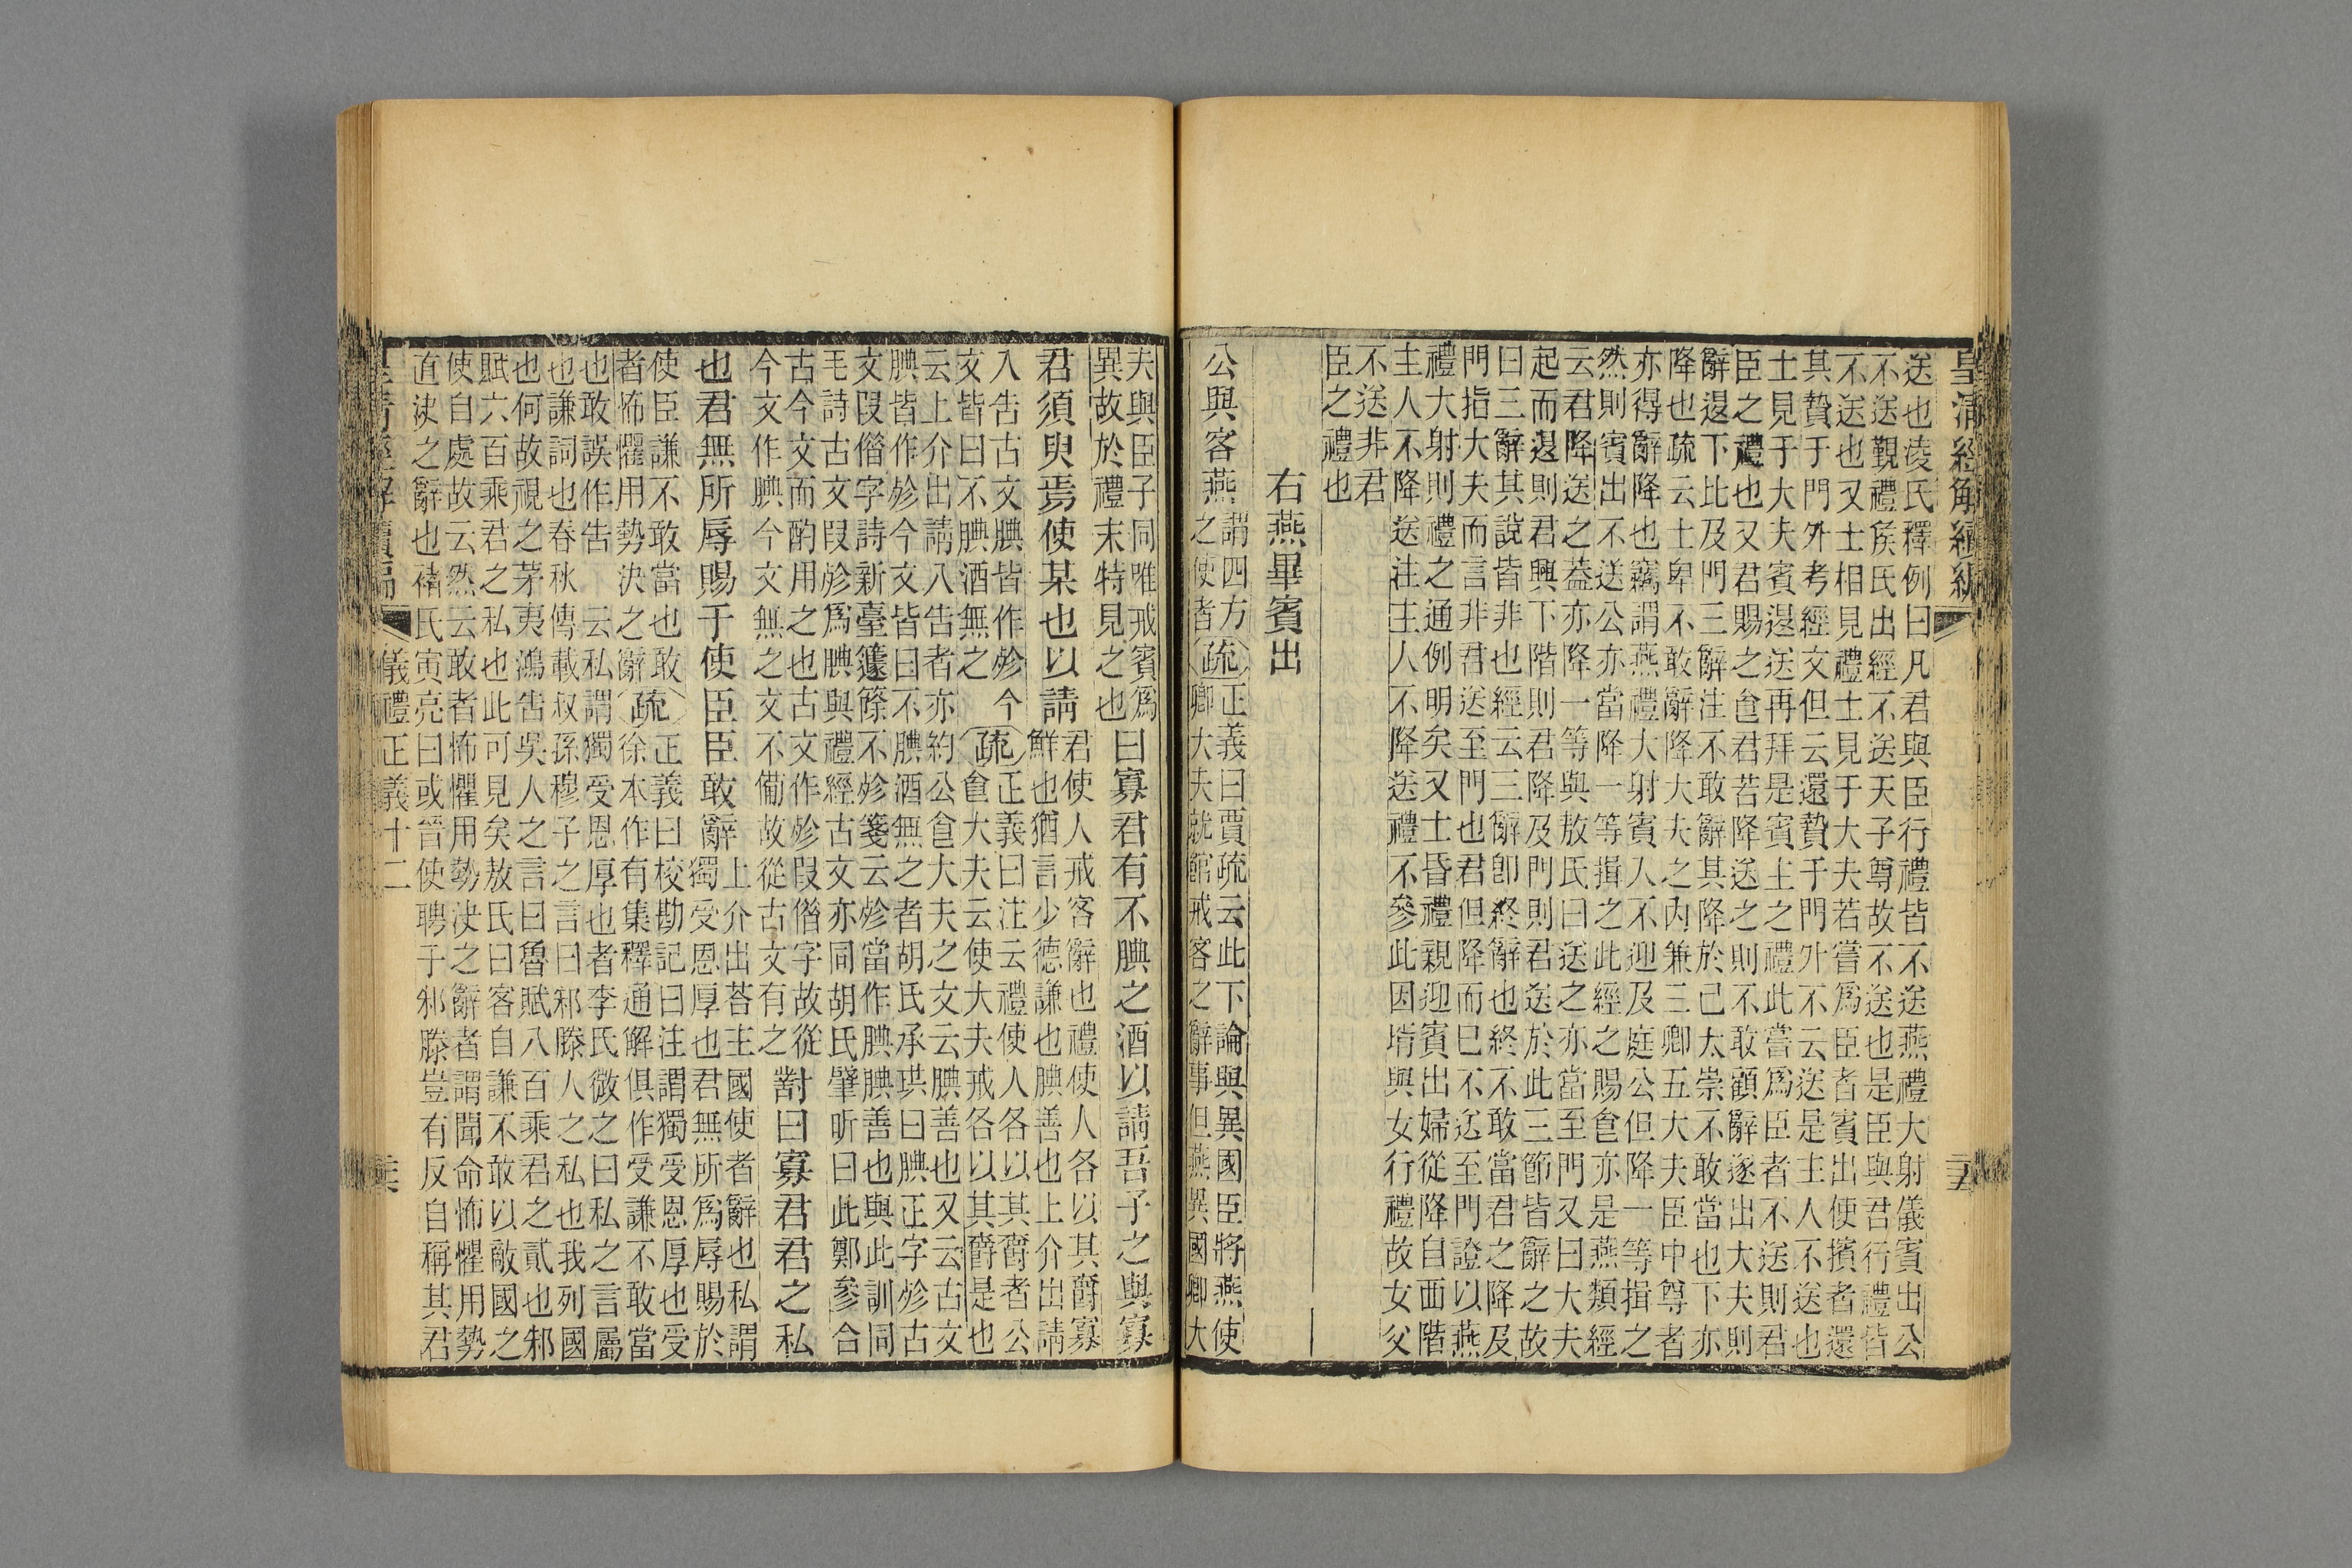 皇清經解續編
送也淩氏釋例曰凡君與臣行禮皆不送燕禮大射儀賓出公
不送覲禮侯氏出經不送天子尊故不送也是臣與君行禮皆
不送也又士相見禮士見于大夫若嘗爲臣者賓出使擯者還
其贄于門外考經文但云還贄于門外不云送是主人不送也
士見于大夫賓退送再拜是賓主之禮此嘗爲臣者不送則君
臣之禮也又君賜之食君若降送之則不敢顧辭遂出大夫則
辭退下比及門三辭注不敢辭其降於己太崇不敢當也下亦
降也疏云士卑不敢辭降大夫之內兼三卿五大夫臣中尊者
亦得辭降也竊謂燕禮大射賓入不迎及庭公但降一等揖之
然則賓出不送公亦當降一等揖之此經之賜食亦是燕類經
云君降送之葢亦降一等與敖氏曰送之亦當至門又曰大夫
起而退則君興下階則君降及門則君送於此三節皆辭之故
曰三辭其說皆非也經云三辭卽終辭也終不敢當君之降及
門指大夫而言非君送至門也君但降而已不送至門證以燕
禮大射則禮之通例明矣又士昏禮親迎賓出婦從降自西階
主人不降送注主人不降送禮不參此因壻與女行禮故女父
不送非君
臣之禮也
右燕畢賓出
公與客燕
謂四方
之使者
疏
正義曰賈疏云此下論與異國臣將燕使
卿大夫就館戒客之辭事但燕異國卿大
夫與臣子同唯戒賓爲
異故於禮末特見之也
曰寡君有不腆之酒以請吾子之與寡
君須臾焉使某也以請
君使人戒客辭也禮使人各以其爵寡
鮮也猶言少德謙也腆善也上介出請
入告古文腆皆作殄今
文皆曰不腆酒無之
疏
正義曰注云禮使人各以其爵者公
食大夫云使大夫戒各以其爵是也
云上介出請入告者亦約公食大夫之文云腆善也又云古文
腆皆作殄今文皆曰不腆酒無之者胡氏承珙曰腆正字殄古
文叚借字詩新臺籧篨不殄箋云殄當作腆腆善也與此訓同
毛詩古文叚殄爲腆與禮經古文亦同胡氏肇昕曰此鄭參合
古今文而酌用之也古文作殄叚借字故從
今文作腆今文無之文不備故從古文有之
對曰寡君君之私
也君無所辱賜于使臣臣敢辭
上介出荅主國使者辭也私謂
獨受恩厚也君無所爲辱賜於
使臣謙不敢當也敢
者怖懼用勢決之辭
疏
正義曰校勘記曰注謂獨受恩厚也受
徐本作有集釋通解俱作受謙不敢當
也敢誤作告 云私謂獨受恩厚也者李氏微之曰私之言屬
也謙詞也春秋傳載叔孫穆子之言曰邾滕人之私也我列國
也何故視之茅夷鴻告吳人之言曰魯賦八百乘君之貳也邾
賦六百乘君之私也此可見矣敖氏曰客自謙不敢以敵國之
使自處故云然云敢者怖懼用勢決之辭者謂聞命怖懼用勢
直決之辭也褚氏寅亮曰或晉使聘于邾滕豈有反自稱其君
皇清經解續編 儀禮正義十二